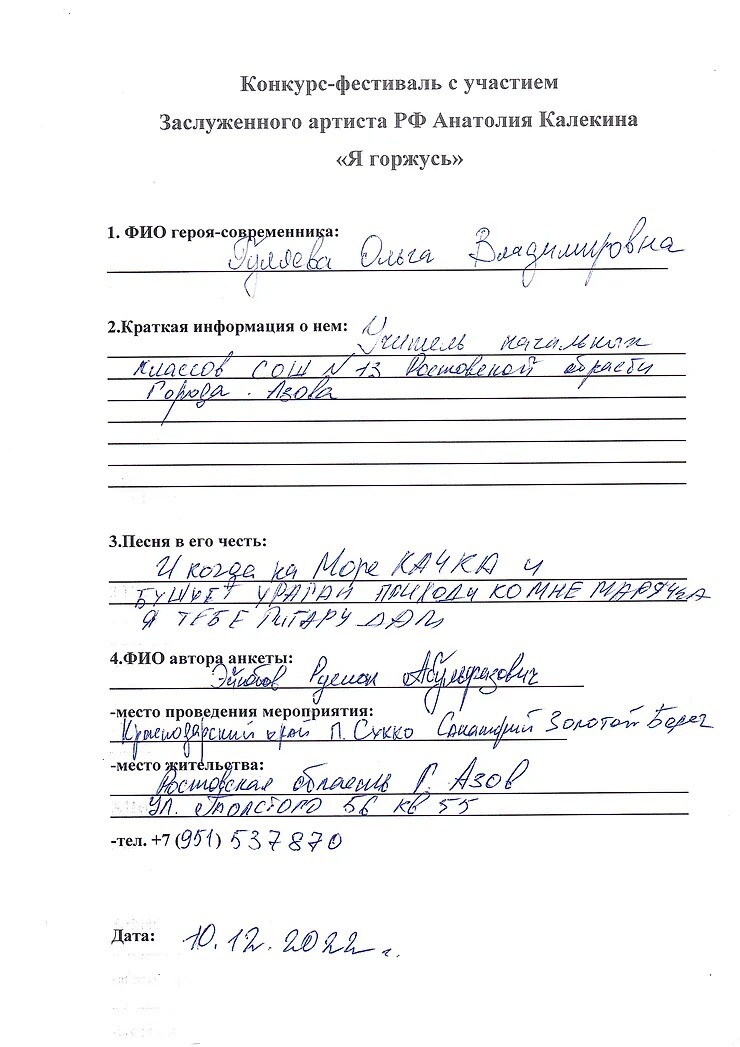 Конкурс-фестиваль с участием
Заслуженного артиста РФ Анатолия Калекина
«Я горжусь»
1. ФИО героя-современника:
Гуляева Ольга Владимировна
2.Краткая информация о нем: Учитель начальных
классов СОШ №13 Ростовской области
Города. Азова
3.Песня в его честь:
И когда на Море КАЧКА и
БУШУЕТ УРАГАН ПРИХОДИ КО МНЕ МАРЯЧКА
Я ТЕБЕ ГИТАРУ ДАМ
4.ФИО автора анкеты:
Руслан
-место проведения мероприятия:
Краснодарский край П. Сукко Санаторий Золотой Берег
-место жительства:
Ростовская область Г. Азов
УЛ. Толстого 56 кв 55
-тел. +7 (951) 537870
Дата: 10.12.2022 г.